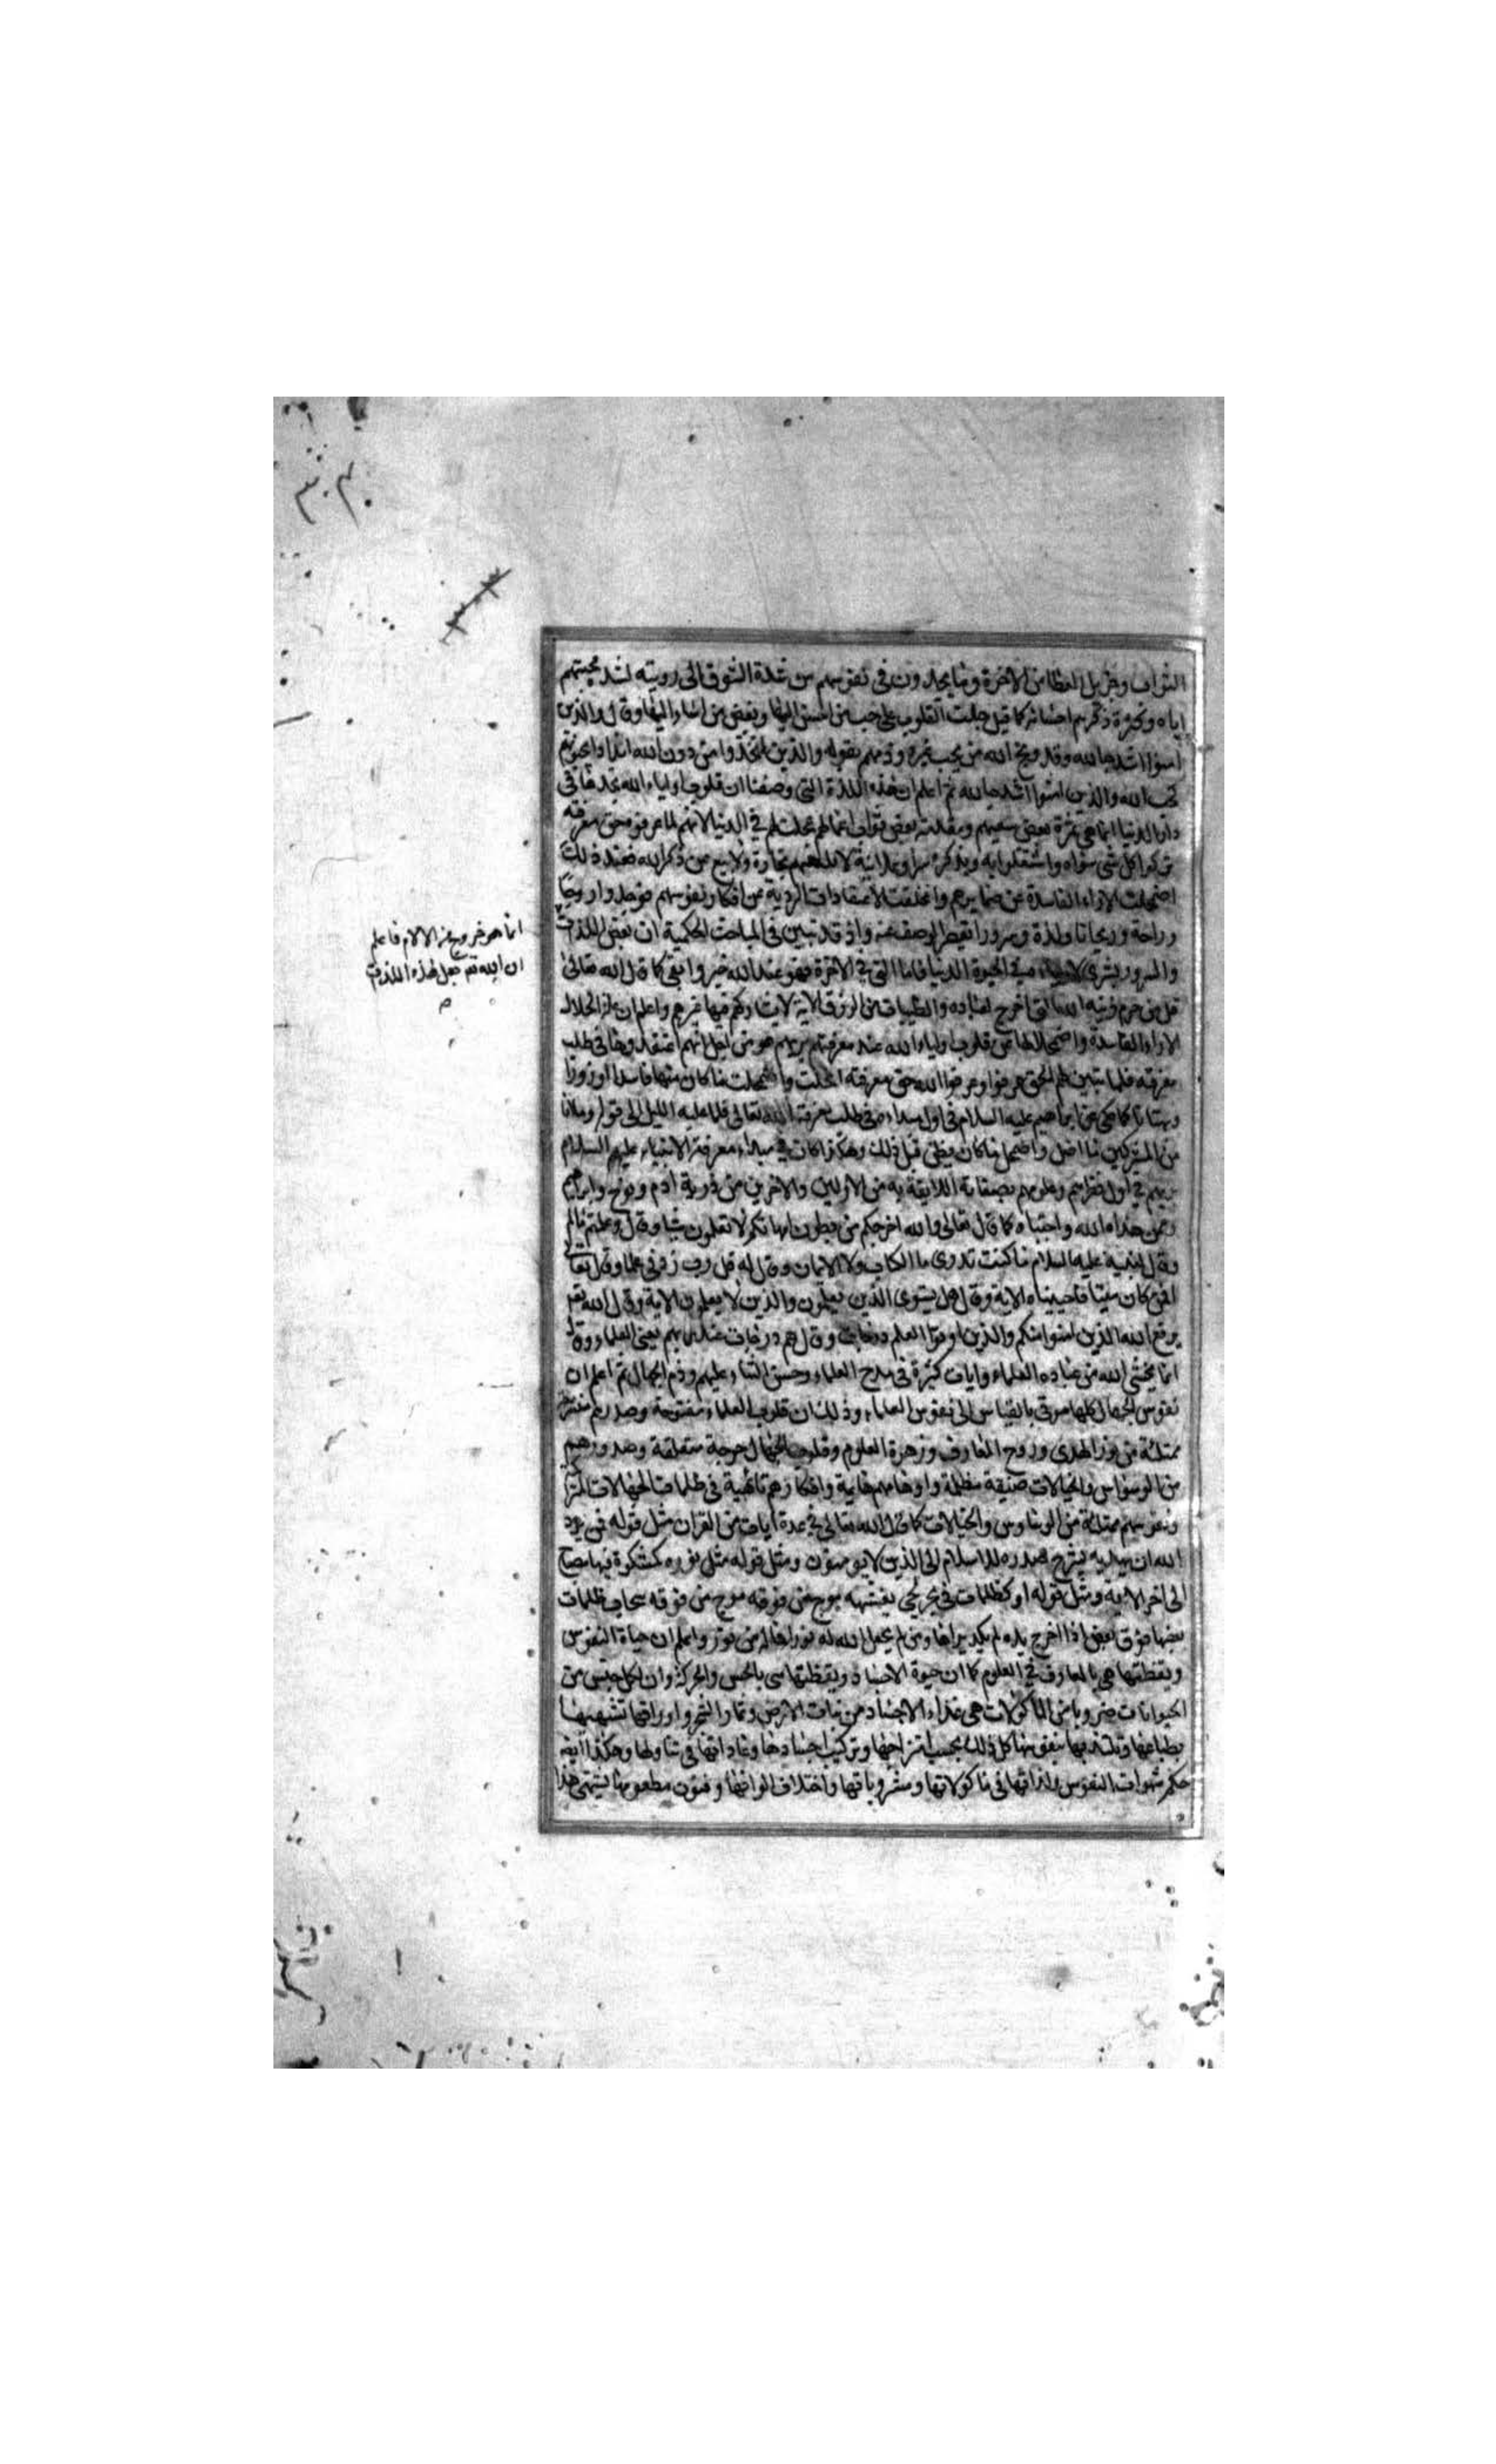 الثواب وجزيل العطا من الاخرة وما يجدون فى نفوسهم من شدة الشوق الى رويته لشد محبتهم
اياه وكثرة ذكرهم احسانه كما قيل جبلت القلوب على حب من احسن اليها وبغض من اساء اليها وقال والذين
امنوا اشد حبا لله وقد وبخ الله من يحب غيره وذمهم بقوله والذين اتخذوا من دون الله اندادا يحبونهم
كحب الله والذين امنوا اشد حبا لله ثم اعلم ان هذه اللذة التى وصفنا ان قلوب اولياء الله تجدها فى
دار الدنيا انما هى ثمرة بعض سعيهم ومقدمة بعض ثواب اعمالهم عجلت لهم فى الدنيا لانهم لما عرفوه حق معرفته
تركوا كل شى سواه واشتغلوا به وبذكره سرا وعلانية لا تلهيهم تجارة ولا بيع عن ذكر الله فعند ذلك
اضمحلت الاراء الفاسدة عن ضمايرهم وانغلقت الاعتقادات الردية عن افكار نفوسهم فوجدوا روحا
وراحة وريحانا ولذة وسرورا تقصر الوصف عنه واذ قد تبين فى المباحث الحكمية ان بعض اللذات
والسرور بشرى لاولياءه فى الحيوة الدنيا فاما التى فى الاخرة فهو عند الله خير وابقى كما قال الله تعالى
قل من حرم زينة الله التى اخرج لعباده والطيبات من الرزق الاية لا يشاركهم فيها غيرهم واعلم ان انحلال
الاراء الفاسدة واضمحلالها عن قلوب اولياء الله عند معرفتهم بربهم هو من اجل انهم اعتقدوها فى طلب
معرفته فلما تبين لهم الحق عرفوا وعرفوا الله حق معرفته انحلت واضمحلت ما كان منها فاسدا او زورا
وبهتانا كما حكى عن ابراهيم عليه السلام فى اول مبداءه فى طلب معرفة الله تعالى فلما جن عليه الليل الى قوله وما انا
من المشركين ما اضل واضمحل ما كان يظن قبل ذلك وهكذا كان فى مبداء معرفة الانبياء عليهم السلام
بربهم فى اول نظرهم وعلومهم بصفاته اللايقة به من الاولين والاخرين من ذرية ادم ونوح وابراهيم
وممن هداه الله واجتباه كما قال تعالى والله اخرجكم من بطون امهاتكم لا تعلمون شيا وقال وعلمتم مالم
وقال لنبيه عليه السلام ما كنت تدرى ما الكتاب ولا الايمان وقال له قل رب زدنى علما وقال تعالى
افمن كان ميتا فاحييناه الاية وقال هل يستوى الذين يعلمون والذين لا يعلمون الاية وقال الله تعـ
يرفع الله الذين امنوا منكم والذين اوتوا العلم درجات وقال لهم درجات عند ربهم يعنى العلماء وقال
انما يخشى الله من عباده العلماء وايات كثيرة فى مدح العلماء وحسن الثناء عليهم وذم الجهال ثم اعلم ان
نفوس الجهال كلها موتى بالقياس الى نفوس العلماء وذلك ان قلوب العلماء مفتوحة وصدرهم منشرحة
ممتلئة من نور الهدى وروح المعارف وزهرة العلوم وقلوب الجهال حرجة منغلقة وصدورهم
من الوسواس والخيالات ضيقة مظلمة واوهامهم هايمة وافكارهم تائهية فى ظلمات الجهالات المتراكمة
ونفوسهم ممتلئة من الوساوس والخيالات كما قال الله تعالى فى عدة ايات من القران مثل قوله فمن يرد
الله ان يهديه يشرح صدره للاسلام الى الذين لا يومنون ومثل قوله مثل نوره كمشكوة فيها مصباح
الى اخر الاية ومثل قوله او كظلمات فى بحر لجى يغشيه موج من فوقه موج من فوقه سحاب ظلمات
بعضها فوق بعض اذا اخرج يده لم يكد يراها ومن لم يجعل الله له نورا فما له من نور واعلم ان حياة النفوس
ويقظتها هى بالمعارف فى العلوم كما ان حيوة الاجساد ويقظتها هى بالحس والحركة وان لكل جنس من
الحيوانات ضروبا من الماكولات هى غذاء الاجساد من نبات الارض وثمار الشجر واوراقها تشتهيها
بطباعها وتلتذ بها نفوسها كل ذلك بحسب امتزاجها وتركيب اجسادها وعاداتها فى تناولها وهكذا ايضا
حكم شهوات النفوس ولذاتها فى ماكولاتها ومشروباتها واختلاف الوانها وفنون مطعومها يشتهى هذا
انما هو خروج من الالام فاعلم
ان الله تعـ جعل هذه اللذات